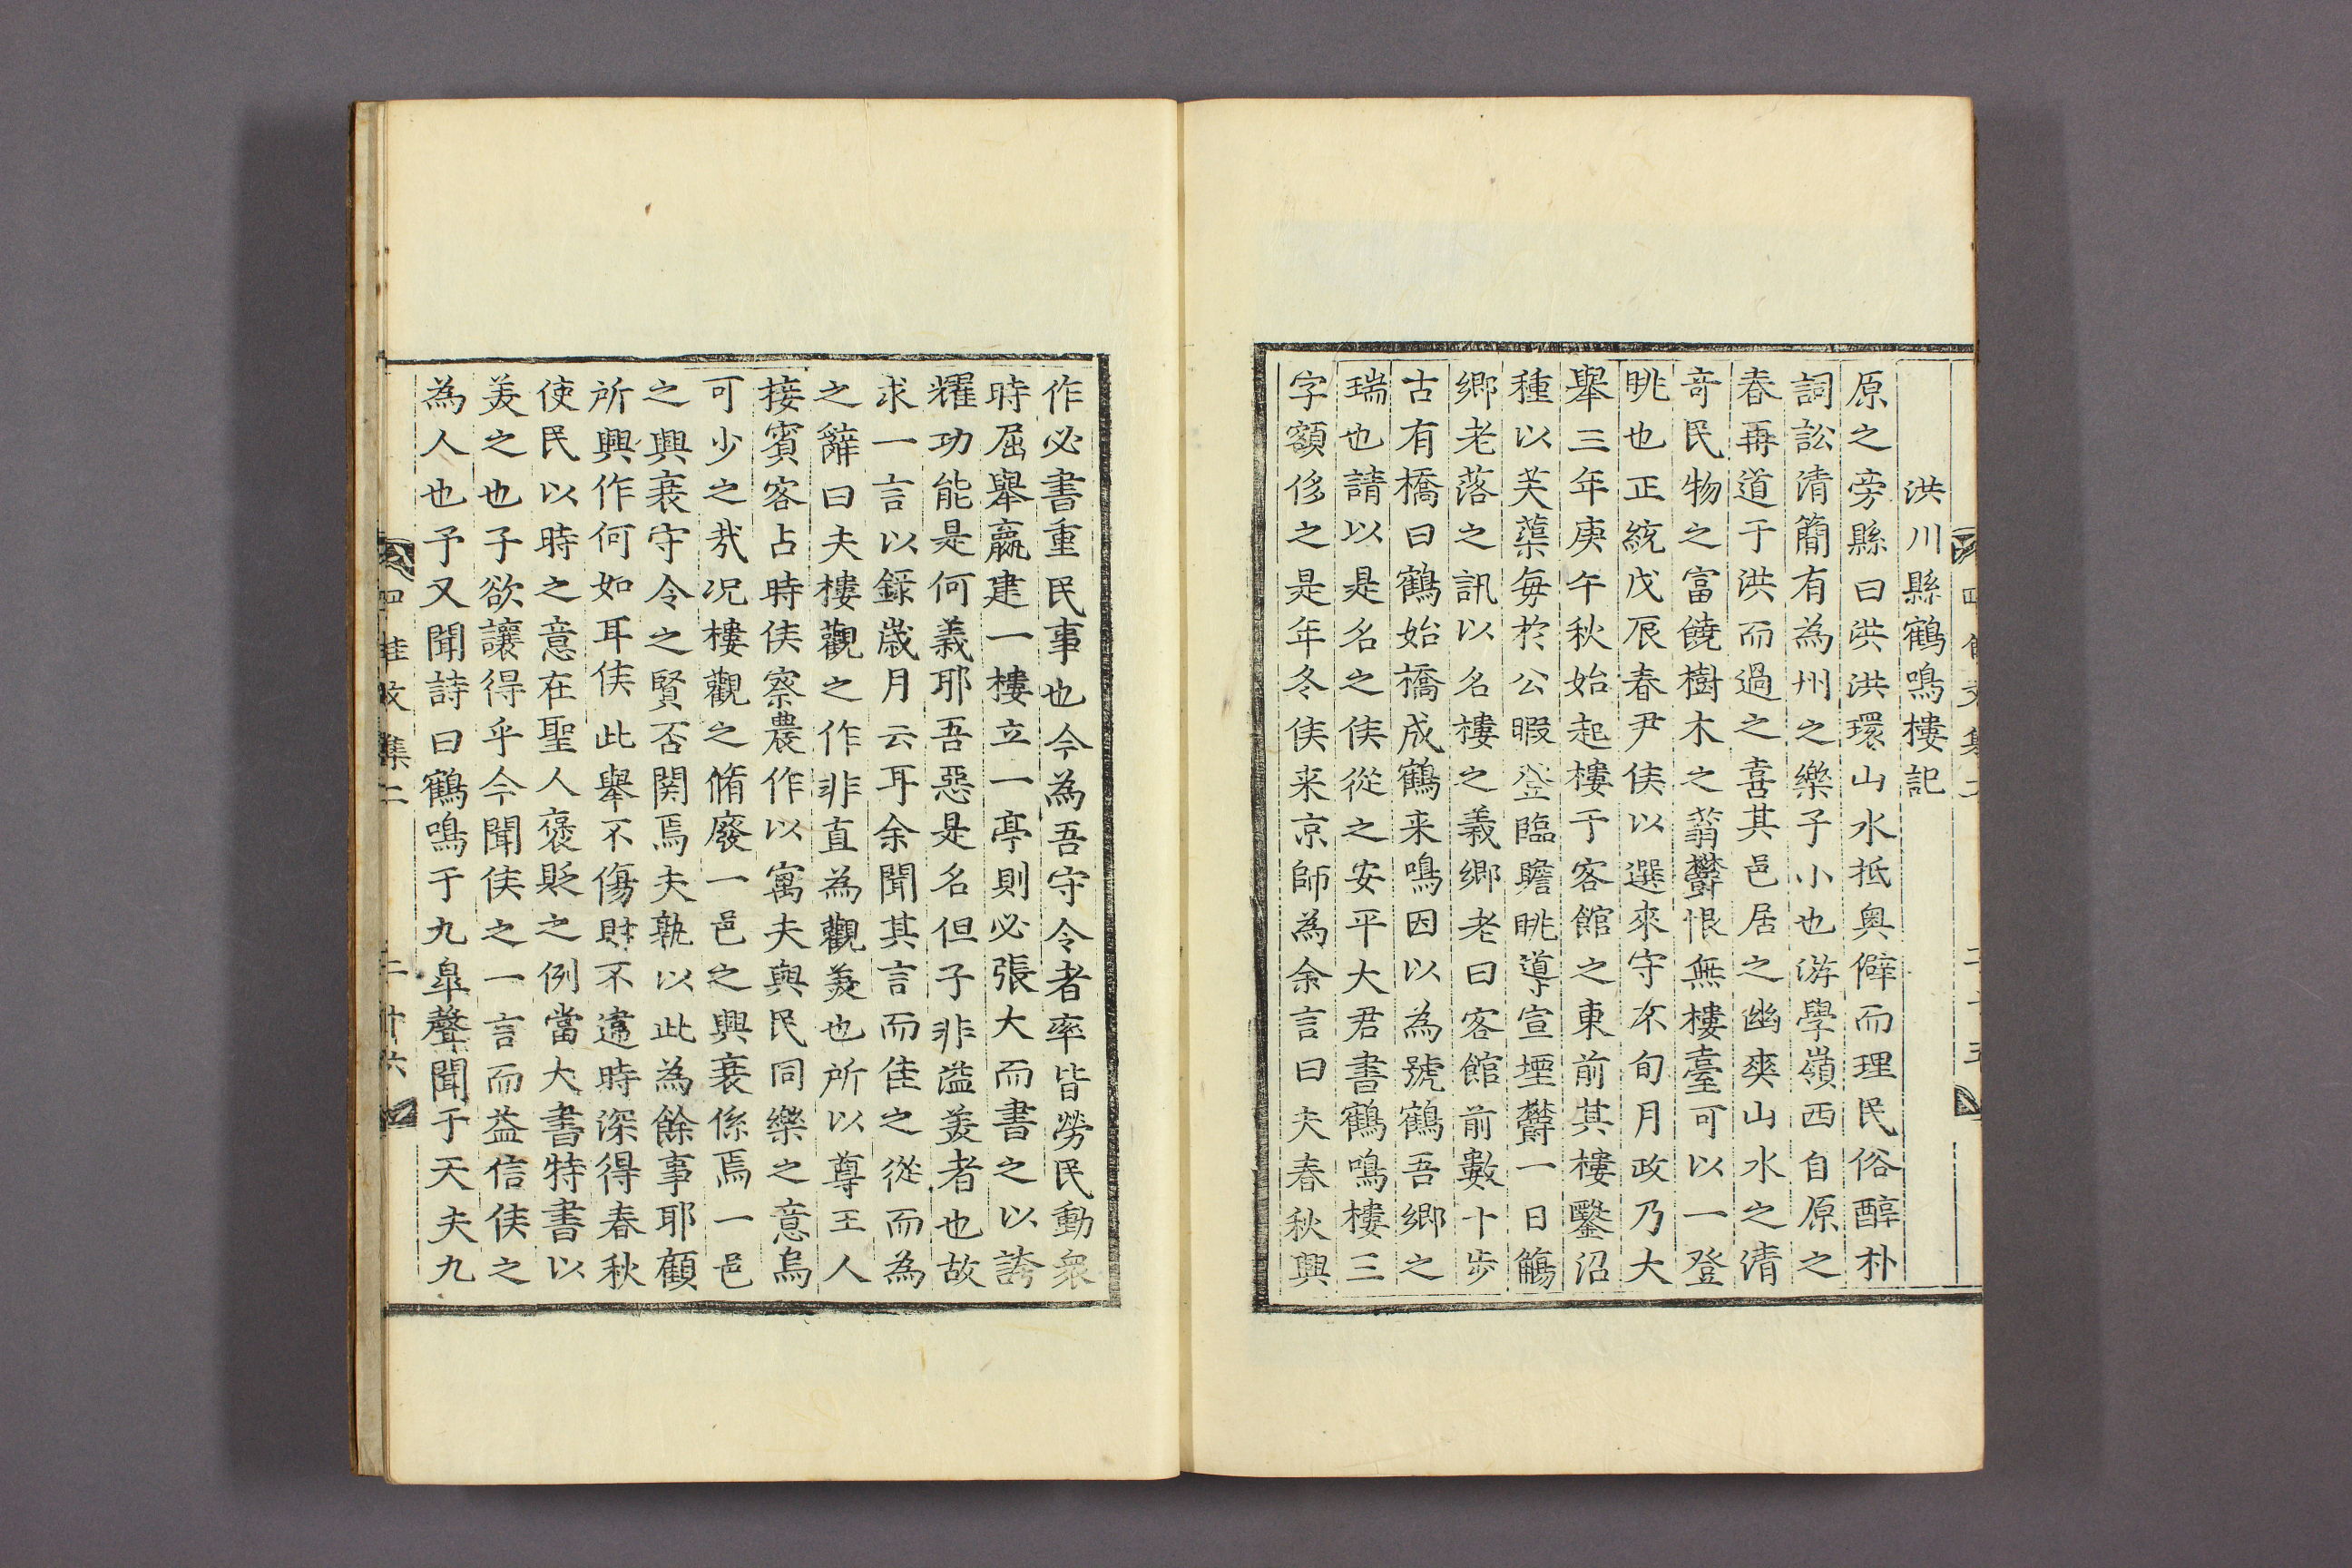 洪川縣鶴鳴樓記
原之旁縣曰洪洪環山水抵奥僻而理民俗醇朴
詞訟清簡有為州之樂子小也游學嶺西自原之
春再道于洪而過之喜其邑居之幽爽山水之清
竒民物之富饒樹木之蓊欎恨無樓臺可以一登
眺也正統戊辰春尹侯以選來守不旬月政乃大
舉三年庚午秋始起樓于客館之東前其樓鑿沼
種以芙蕖每於公暇登臨瞻眺導宣堙欎一日觴
鄉老落之訊以名樓之義鄉老曰客館前數十步
古有橋曰鶴始橋成鶴来鳴因以為號鶴吾鄉之
瑞也請以是名之侯從之安平大君書鶴鳴樓三
字額侈之是年冬侯来京師為余言曰夫春秋興
作必書重民事也今為吾守令者率皆勞民動衆
時屈舉羸建一樓立一亭則必張大而書之以誇
耀功能是何義耶吾惡是名但子非溢羙者也故
求一言以錄歲月云耳余聞其言而佳之從而為
之辭曰夫樓觀之作非直為觀美也所以尊王人
接賓客占時侯察農作以寓夫與民同樂之意烏
可少之㢤况樓觀之脩廢一邑之興衰係焉一邑
之興衰守令之賢否関焉夫孰以此為餘事耶顧
所興作何如耳侯此舉不傷財不違時深得春秋
使民以時之意在聖人褒貶之例當大書特書以
美之也子欲讓得乎今聞侯之一言而益信侯之
為人也予又聞詩曰鶴鳴于九皐聲聞于天夫九
四佳文集二
二十六